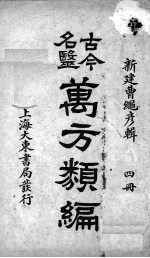 新建曹繩彦輯 四冊
古今
名醫
萬方類編
上海大東書局發行